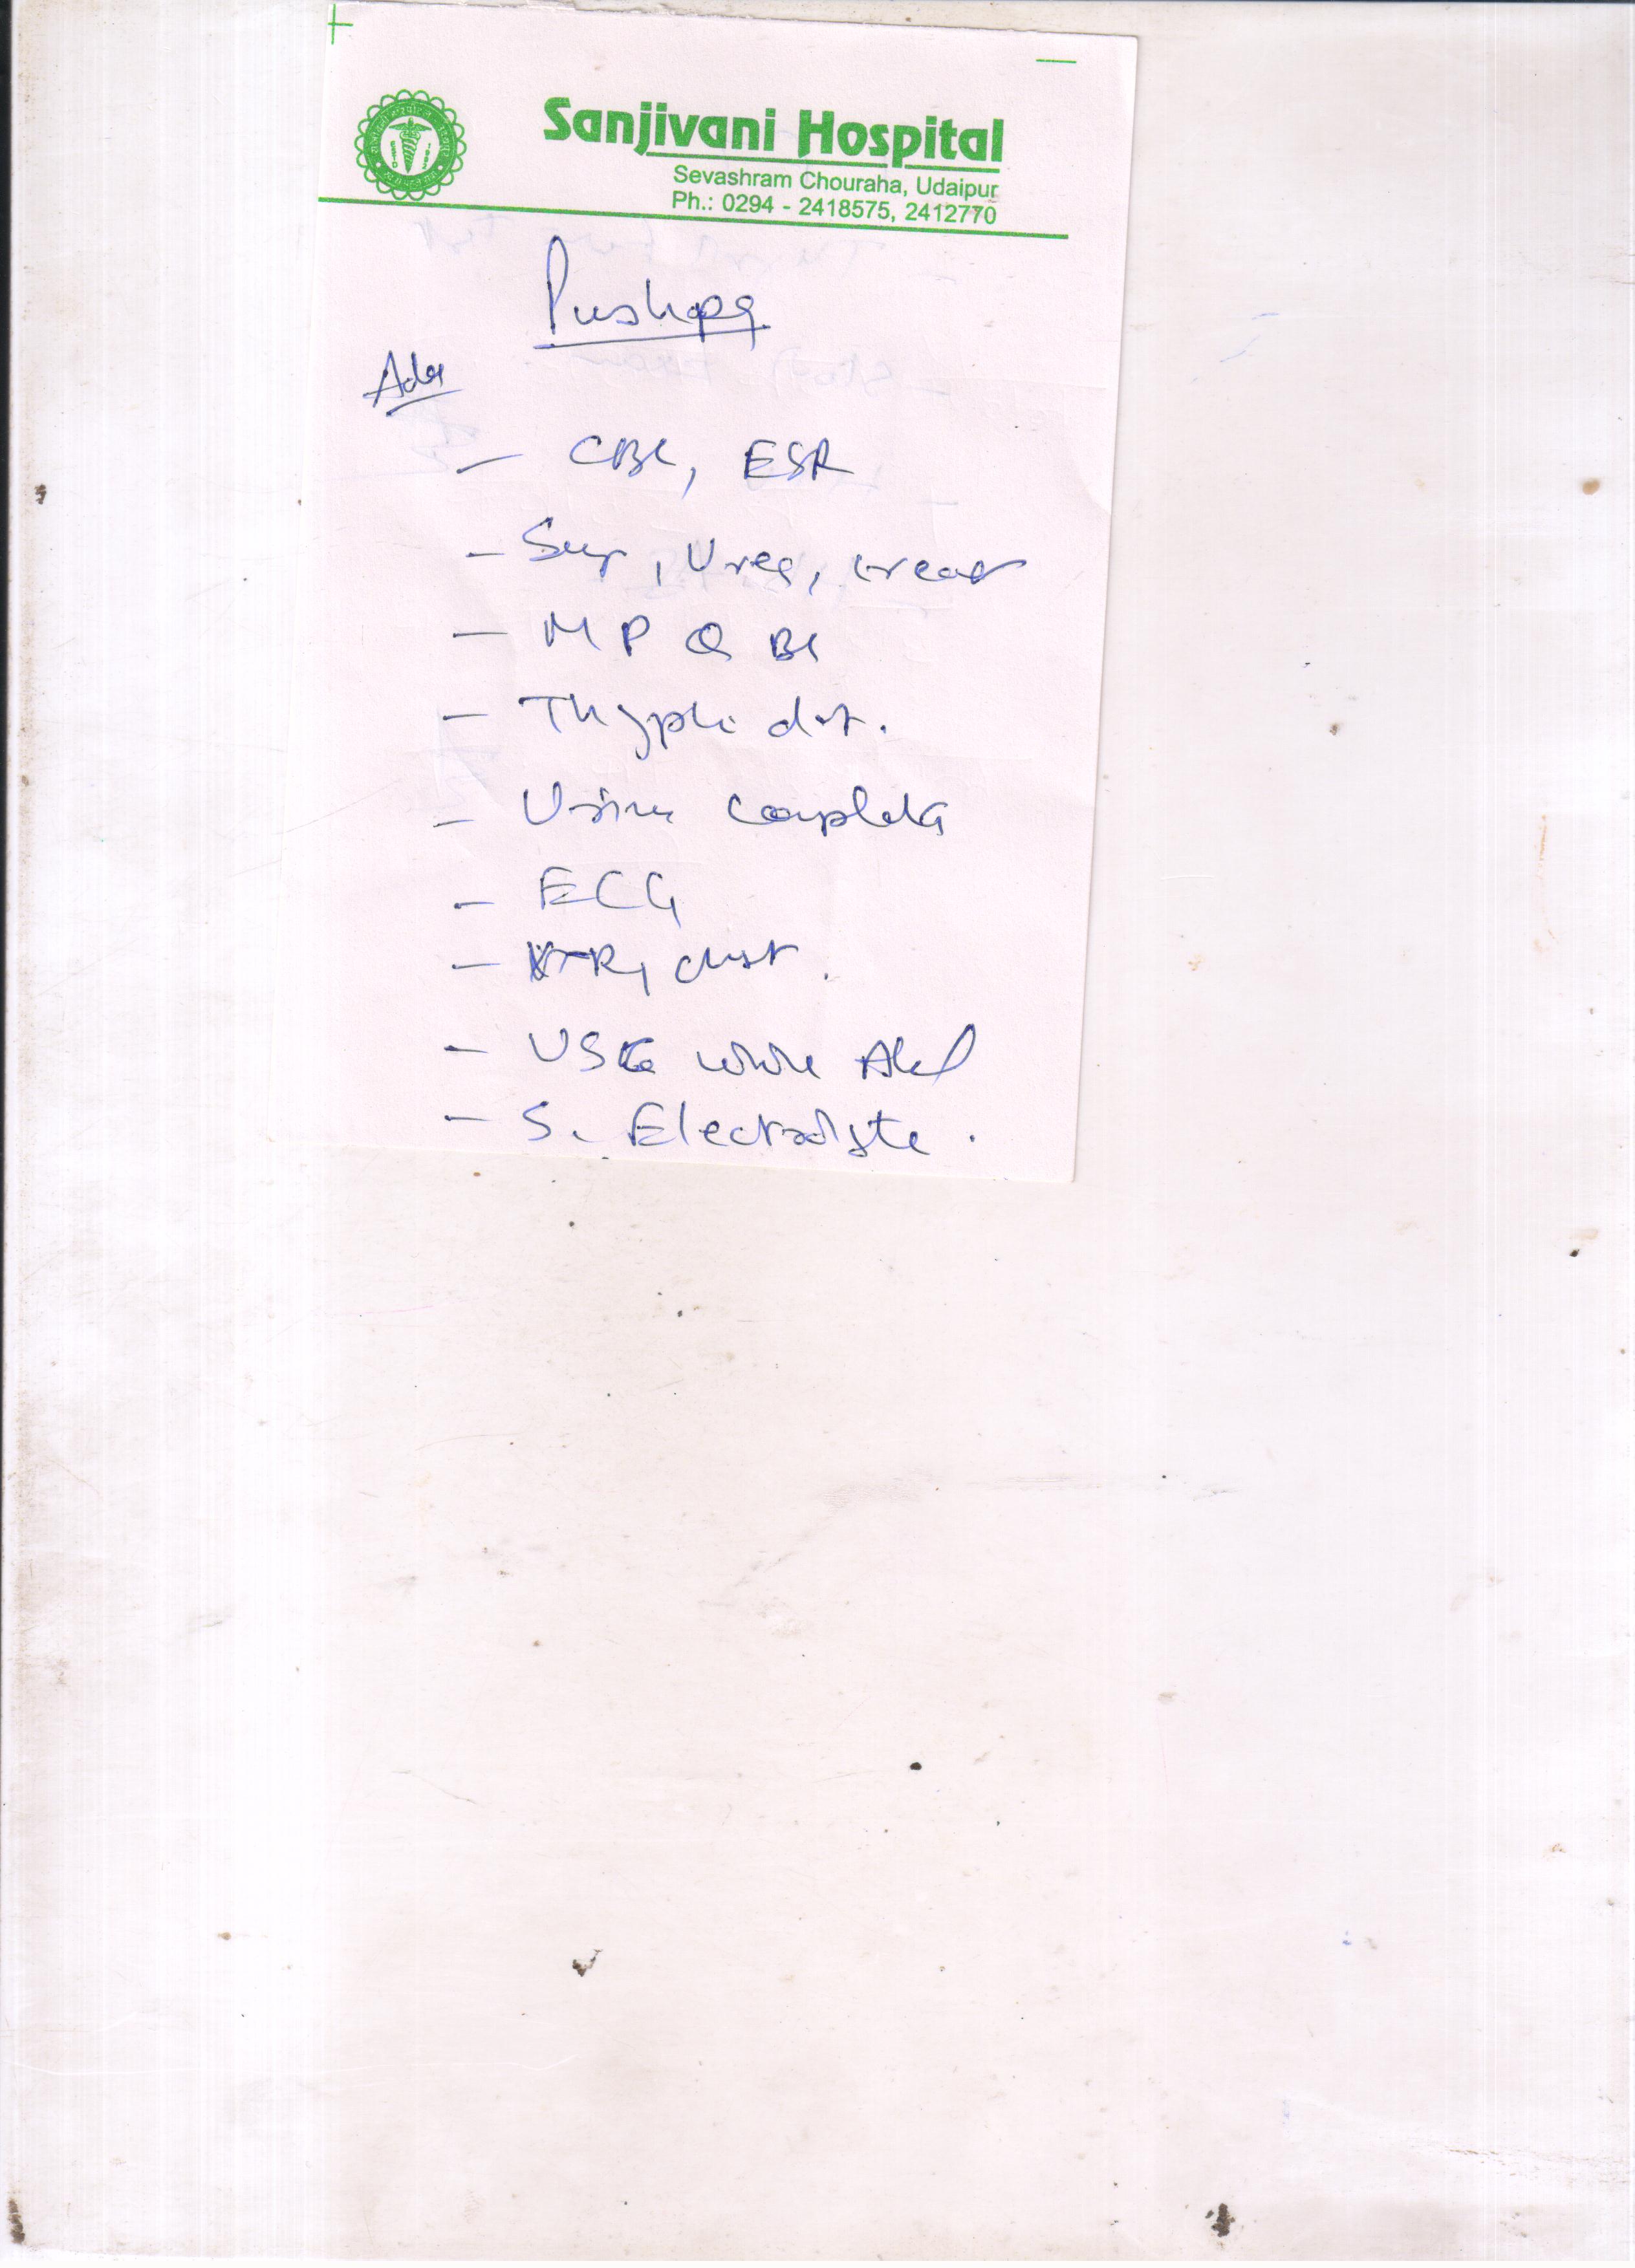 Sanjivani Hospital
Sevashram Chouraha, Udaipur
Ph.: 0294 - 2418575, 2412770
Pushpa
Adv
- CBC, ESR
- Sugr, Urea, creat
- MP QBC
- Thyphi dot.
- Urine complete
- ECG
- X-Ray chest.
- USG whole Abd
- S. Electrolyte.